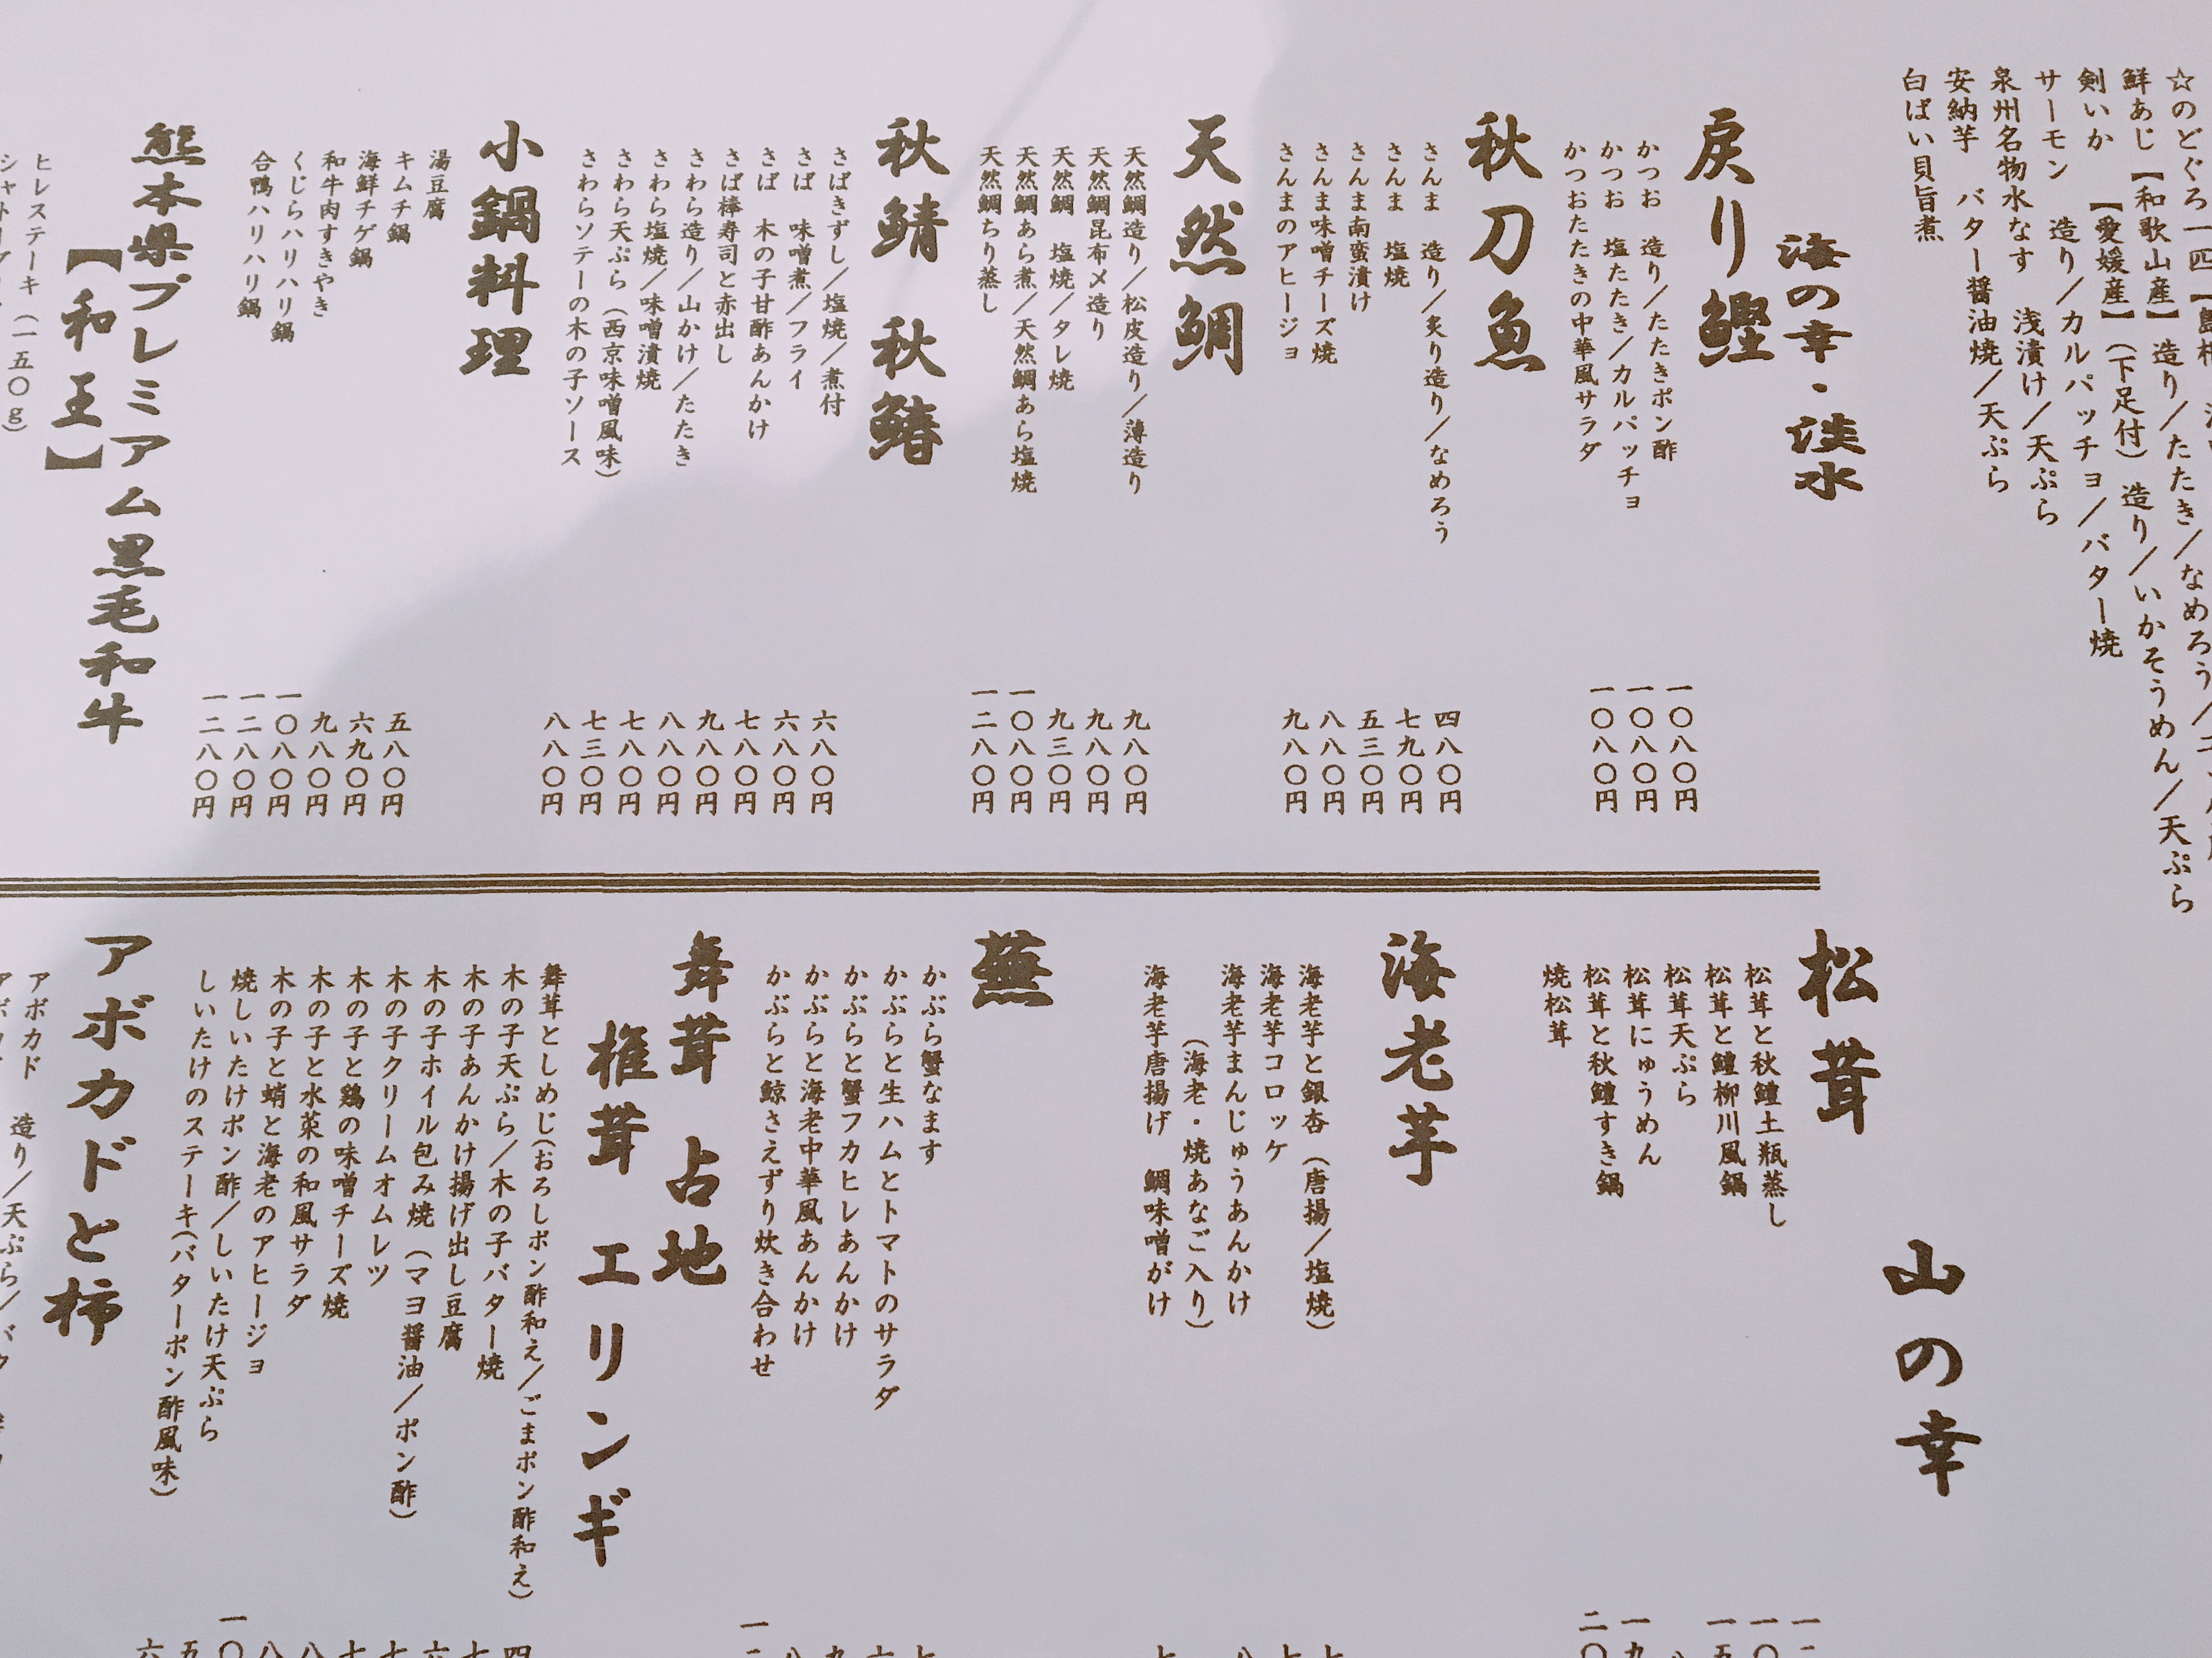 ☆のどぐろ一匹
鮮あじ【和歌山産】造り／たたき／なめろう／
剣いか 【愛媛産】（下足付）造り／いかそうめん／天ぷら
サーモン 造り／カルパッチョ／バター焼
泉州名物水なす 浅漬け／天ぷら
安納芋 バター醤油焼／天ぷら
白ばい貝旨煮
海の幸・淡水
戻り鰹
かつお 造り／たたきポン酢 一〇八〇円
かつお 塩たたき／カルパッチョ 一〇八〇円
かつおたたきの中華風サラダ 一〇八〇円
秋刀魚
さんま 造り／炙り造り／なめろう 四八〇円
さんま 塩焼 七九〇円
さんま南蛮漬け 五三〇円
さんま味噌チーズ焼 八八〇円
さんまのアヒージョ 九八〇円
天然鯛
天然鯛造り／松皮造り／薄造り 九八〇円
天然鯛昆布〆造り 九八〇円
天然鯛 塩焼／タレ焼 九三〇円
天然鯛あら煮／天然鯛あら塩焼 一〇八〇円
天然鯛ちり蒸し 一二八〇円
秋鯖 秋鰆
さばきずし／塩焼／煮付 六八〇円
さば 味噌煮／フライ 六八〇円
さば 木の子甘酢あんかけ 七八〇円
さば棒寿司と赤出し 九八〇円
さわら造り／山かけ／たたき 八八〇円
さわら塩焼／味噌漬焼 七八〇円
さわら天ぷら（西京味噌風味） 七三〇円
さわらソテーの木の子ソース 八八〇円
小鍋料理
湯豆腐 五八〇円
キムチ鍋 六九〇円
海鮮チゲ鍋 九八〇円
和牛肉すきやき 一〇八〇円
くじらハリハリ鍋 一二八〇円
合鴨ハリハリ鍋 一二八〇円
熊本県プレミアム黒毛和牛
【和王】
ヒレステーキ（一五〇g）
山の幸
松茸
松茸と秋鱧土瓶蒸し
松茸と鱧柳川風鍋
松茸天ぷら
松茸にゅうめん
松茸と秋鱧すき鍋
焼松茸
海老芋
海老芋と銀杏（唐揚／塩焼）
海老芋コロッケ
海老芋まんじゅうあんかけ
（海老・焼あなご入り）
海老芋唐揚げ 鯛味噌がけ
蕪
かぶら蟹なます
かぶらと生ハムとトマトのサラダ
かぶらと蟹フカヒレあんかけ
かぶらと海老中華風あんかけ
かぶらと鯨さえずり炊き合わせ
舞茸 占地
椎茸 エリンギ
舞茸としめじ（おろしポン酢和え／ごまポン酢和え）
木の子天ぷら／木の子バター焼
木の子あんかけ揚げ出し豆腐
木の子ホイル包み焼（マヨ醤油／ポン酢）
木の子クリームオムレツ
木の子と鶏の味噌チーズ焼
木の子と水菜の和風サラダ
木の子と蛸と海老のアヒージョ
焼しいたけポン酢／しいたけ天ぷら
しいたけのステーキ（バターポン酢風味）
アボカドと柿
アボカド 造り／天ぷら／バタ